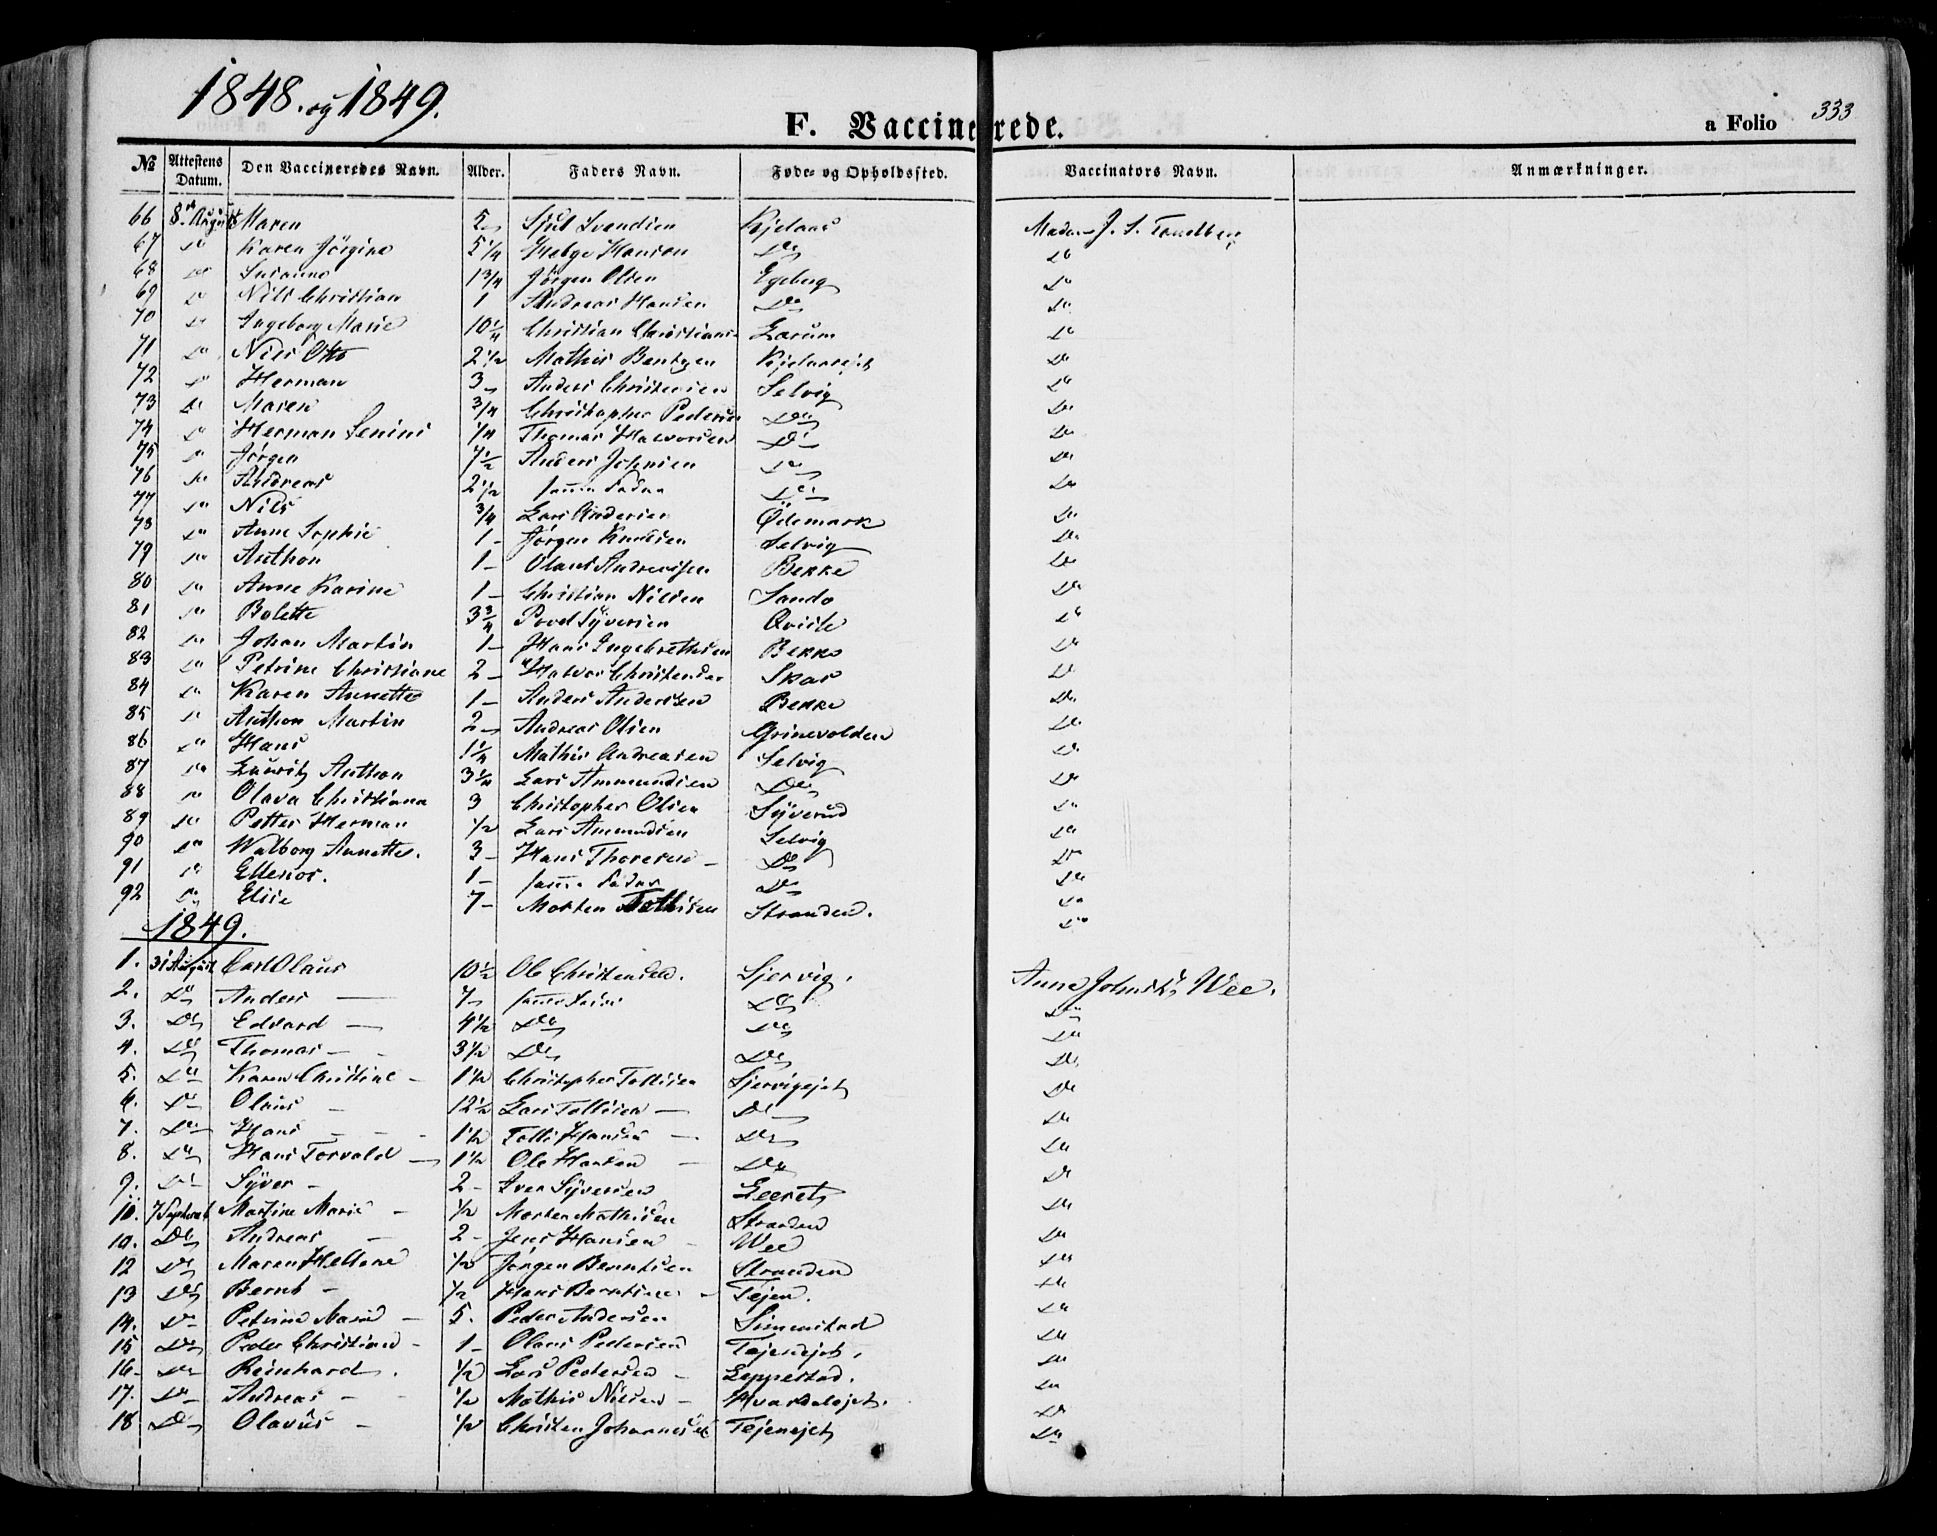 1848. og 1849.
F. Vaccinerede.
a Folio 333
№ Attestens Datum. Den Vaccineredes Navn. Alder. Faders Navn. Føde- og Opholdssted. Vaccinators Navn. Anmærkninger.
66 8de August Maren 2 Sjul Svendsen Madm J. S.
67 Do Karen Jörgine 5 1/4 Helge Hansen Do Do
68 Do Susanne 1 3/4 Jörgen Olsen Egeberg Do
69 Do Nils Christian 1 Andreas Hansen Do Do
70 Do Ingeborg Marie 10 1/4 Christian Christians- Do
71 Do Nils Otto 2 1/2 Mathis Bentzen Do
72 Do Herman 3 Anders Christensen Selvig Do
73 Do Maren 3/4 Christopher Pedersen Do Do
74 Do Herman Severin 1/4 Thomas Halvorsen Do Do
75 Do Jörgen 7 1/2 Anders Johnsen Do Do
76 Do Andreas 2 1/2 samme Fader Do Do
77 Do Nils 3/4 Lars Andersen Ödemark Do
78 Do Anne Sophie 1 - Jörgen Knudsen Selvig Do
79 Do Anthon 1 - Olaus Andreassen Bekke Do
80 Do Anne Karine 1 - Christian Nilsen Sandö Do
81 Do Bolette 3 3/4 Povel Syversen Qvisle Do
82 Do Johan Martin 1 - Hans Ingebrethsen Bekke Do
83 Do Petrine Christiane 2 - Halvor Christensen Skar Do
84 Do Karen Annette 1 - Anders Andersen Bekke Do
85 Do Anthon Martin 2 - Andreas Olsen Grinevolden Do
86 Do Hans 1 1/4 Mathis Andreasen Selvig Do
87 Do Lauritz Anthon 3 1/4 Lars Ammundsen Do Do
88 Do Olava Christiana 3 Christopher Olsen Syverud Do
89 Do Petter Herman 1/2 Lars Amundsen Selvig Do
90 Do Walborg Annette. 3 - Hans Thoresen - Do Do
91 Do Ellenor. 1 - samme Fader Do Do
92 Do Elise 7 - Morten Tollisen Stranden. Do
1849.
1. 31 August Carl Olaus 10 1/2 Ole Christensen. Sjervig. Anna Johnsd. Wee.
2. Do Anders 7 - samme Fader Do Do
3. Do Edvard 4 1/2 Do Do Do
4. Do Thomas - 3 1/2 Do Do Do
5. Do Karen Christine - 1 1/2 Christopher Tollisen Sjervigejet Do
6. Do Olaus - 12 1/2 Lars Tollisen - Do Do
7. Do Hans - 1 1/2 Tolli Hansen - Do Do
8. Do Hans Torvald - 1 1/2 Ole Hansen - Do Do
9. Do Syver - 2 - Iver Syversen Do
10. 7 Septemb Martine Marie - 1/2 Morten Mathisen Stranden Do
10. Do Andreas - 2 - Jens Hansen - Wee Do
12 Do Maren Hellene 1/2 Jörgen Berntsen Stranden Do
13 Do Bernt - 1/2 Hans Berntsen - Tejen. Do
14. Do Petrine Marie - 5. Peder Andersen Do
15 Do Peder Christian - 1 - Olaus Pedersen Tejenejet. Do
16- Do Reinhard. 1/2 Lars Pedersen - Leppestad. Do
17. Do Andreas - 1/2 Mathis Nilsen - Hvardalejet. Do
18 Do Olavus - 1/2 Christen Johannesen Tejenejet Do